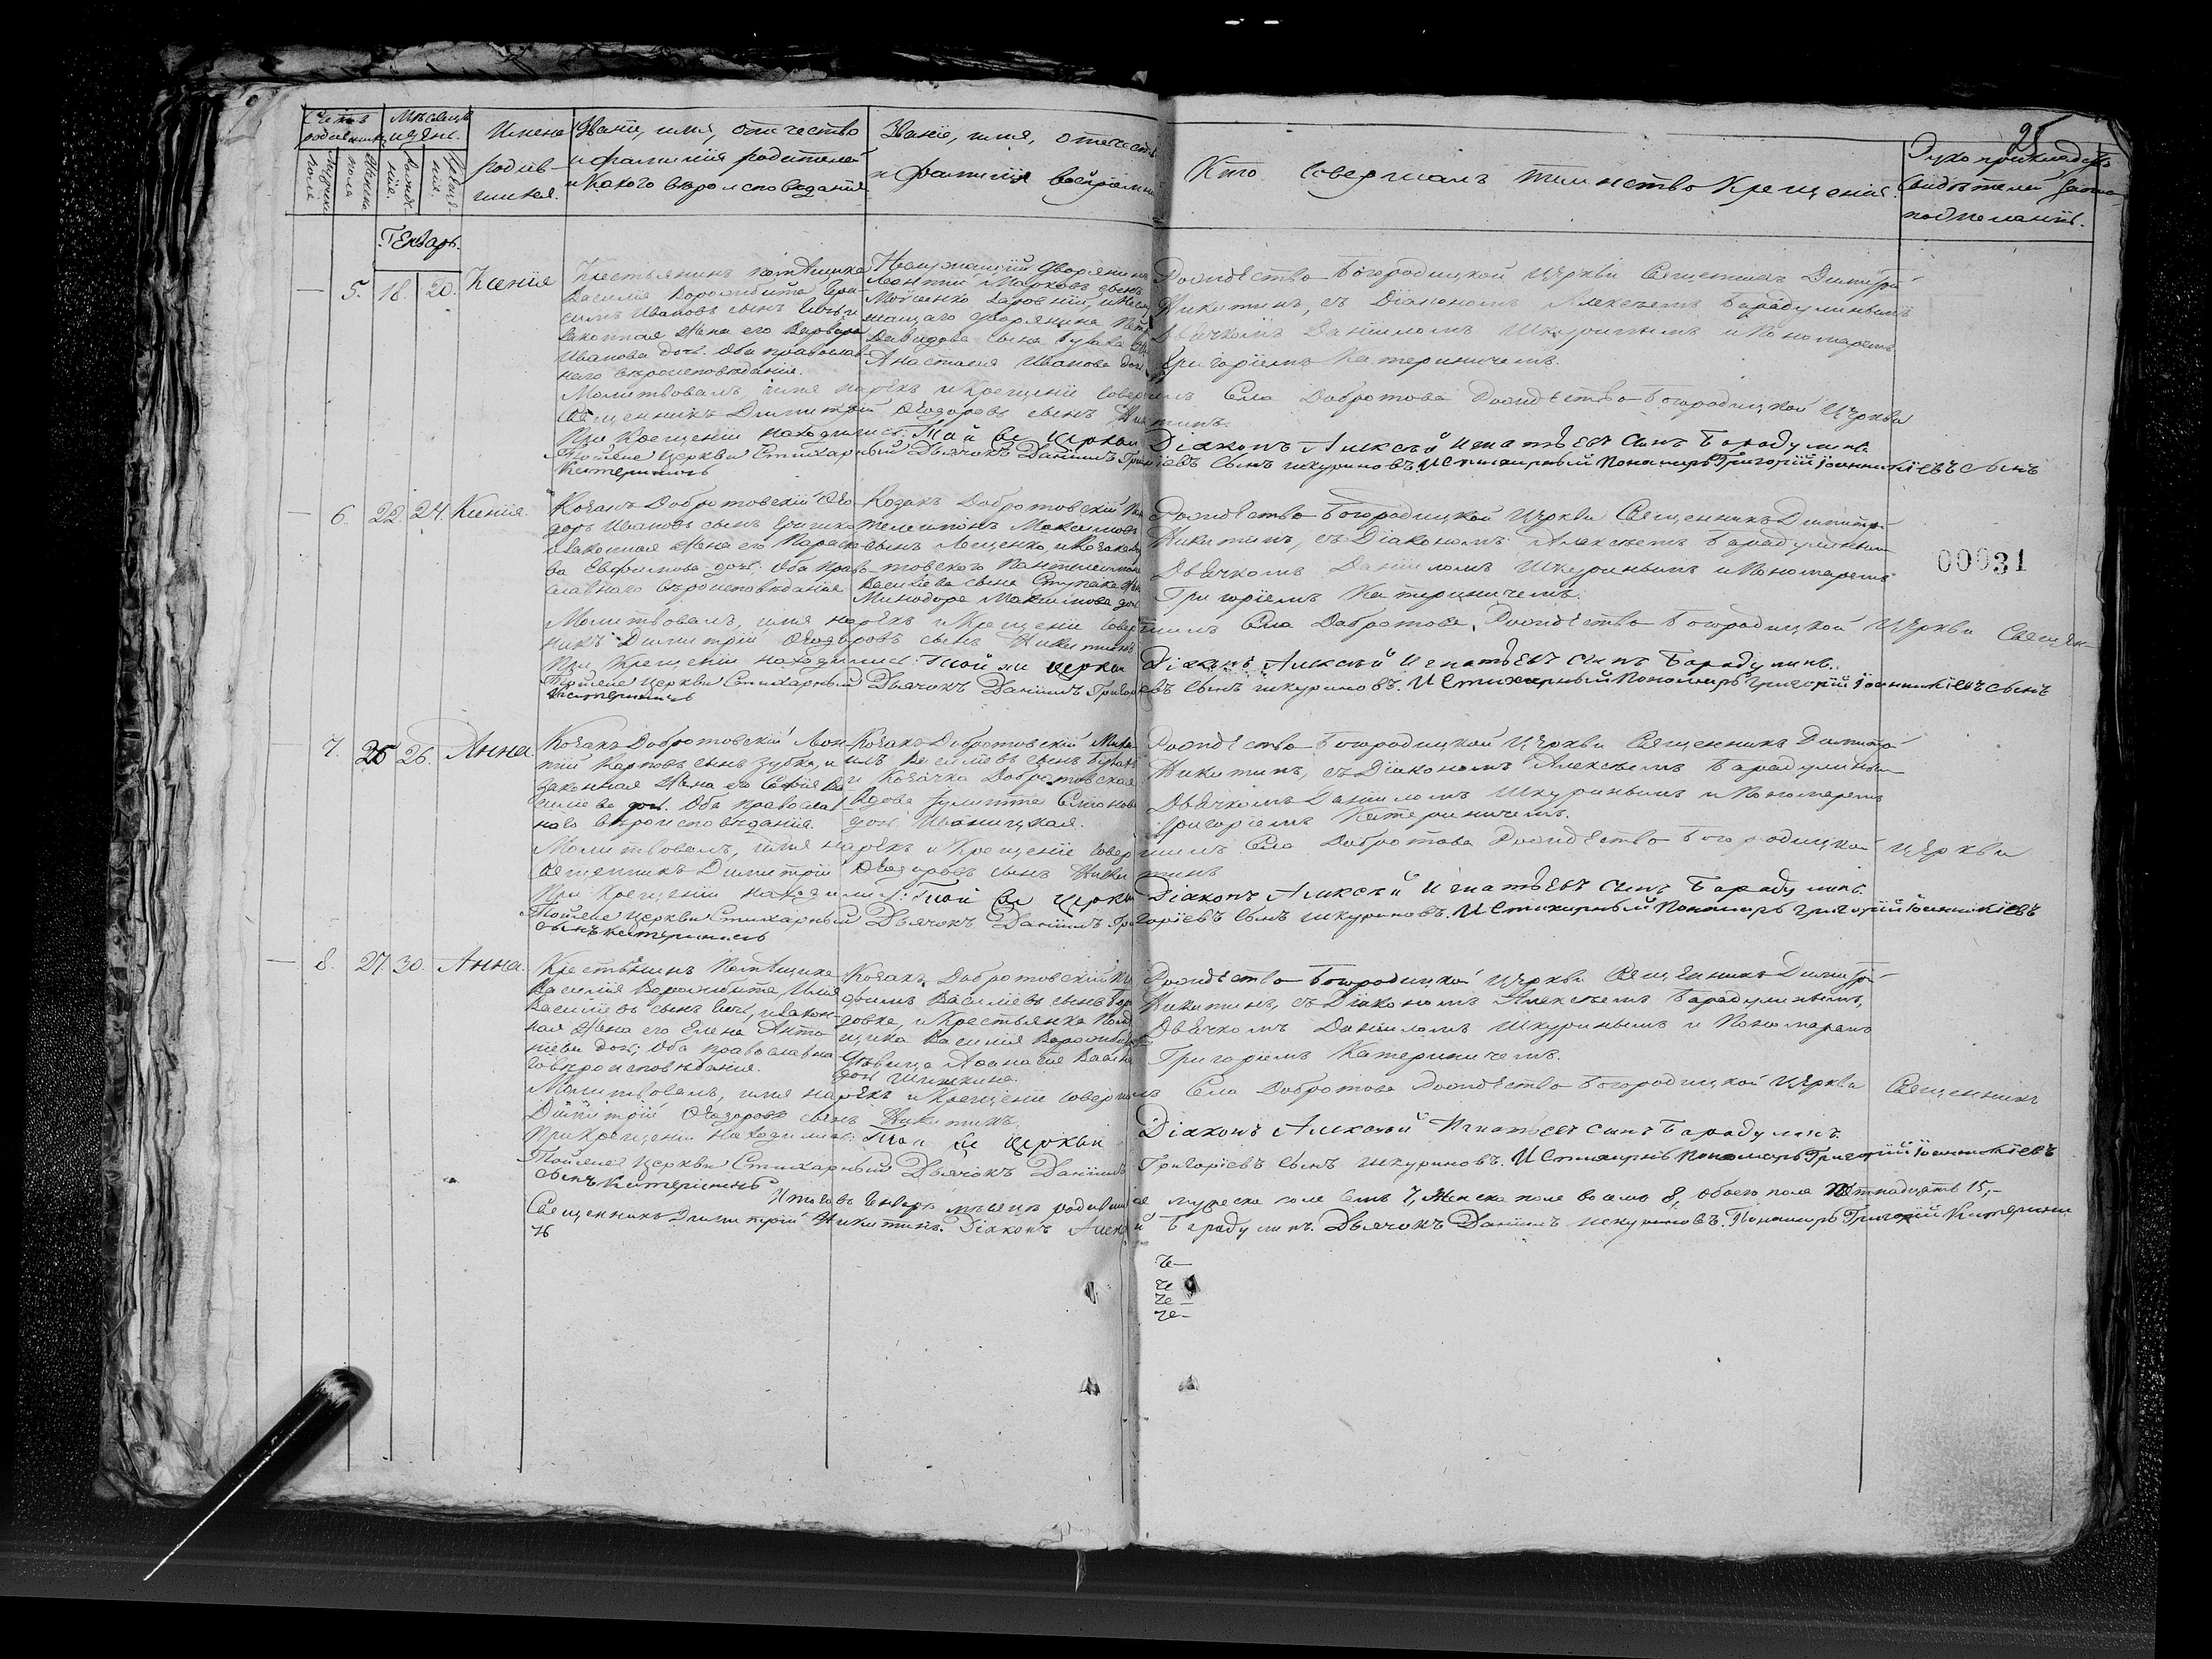 25
Счетъ родившихся
Мѣсяцъ и день.
Мужеска пола
Женска пола
Рожде-
нія.
Креще-
нія.
Имена
родив-
шихся.
Званіе, имя, отчество
и фамилія родителей
и какого вѣроисповѣданія
Званіе, имя, отчеств
и фамилія воспріемни
Кто совершалъ таинство крещенія.
Рукоприкладство
свидѣтелей
по желанію.
Генварь.
5. 18. 20. Ксенія
Крестьянинъ помѣщика
Василія Ворожбита
симъ Ивановъ сынъ
законная жена его Варвара
Иванова доч. Оба православ
наго вѣроисповѣданія.
Неслужащій дворянинъ
Леонтій Марковъ сынъ
щаго дворянина
Давидова сына
Анастасія Иванова доч.
Рождество-Богородицкой Церкви Священникъ Димитрій
Никитинъ, съ Діакономъ Алексѣемъ Барадулинымъ
Дьячкомъ Даніиломъ Шкуринымъ и Пономаремъ
Григоріемъ Катериничемъ.
Молитвовалъ имя нарѣкъ и крещеніе совершилъ Села Добротова Рождество-Богородицкой Церкви
Священникъ Димитрій Ѳеодоровъ сынъ Никитинъ.
При Крещеніи находились: Той же церкви Діаконъ Алексѣй Игнатьевъ сынъ Барадулинъ.
Тойже Церкви Стихарный Дьячокъ Даніилъ Григоріевъ сынъ шкуриновъ. И Стихарный Пономарь Григорій Іоанникіевъ сынъ
Катериничь
6. 22. 24. Ксенія.
Козакъ Добротовскій Ѳео-
доръ Ивановъ сынъ
и законная жена его Параске
ва Евфимова доч. Оба прав
славнаго вѣроисповѣданія
Козакъ Добротовскій Пан
телеимонъ Максимовъ
сынъ Лещенко, и Козака До
товскаго Пантелеимона
Васильева сына Ступака
Минодора Максимова доч
Рождество-Богородицкой Церкви Священникъ Димитрій
Никитинъ, съ Діакономъ Алексѣемъ Барадулинымъ
Дьячкомъ Даніиломъ Шкуринымъ и Пономаремъ
Григоріемъ Катериничемъ.
00031
Молитвовалъ, имя нарѣкъ и крещеніе совершилъ Села Добротова, Рождество-Богородицкой Церкви Священ-
никъ Димитрій Ѳеодоровъ сынъ Никитинъ
При Крещеніи находились: Той же церкви Діаконъ Алексѣй Игнатьевъ сынъ Барадулинъ.
Тойже Церкви Стихарный Дьячокъ Даніилъ Григорьевъ сынъ шкуриновъ. И Стихарный Пономарь Григорій Іоанникіевъ сынъ
Катериничь
7. 25 26. Анна
Козакъ Добротовскій Леон-
тій Карповъ сынъ Зубко, и
законная жена его Софія Ва
силіева доч. Оба православ
наго вѣроисповѣданія.
Козакъ Добротовскій Миха
илъ Василіевъ сынъ
и Козачка Добротовская
Вдова Іулитта Симонова
доч. Иваницкая.
Рождество-Богородицкой Церкви Священникъ Димитрій
Никитинъ, съ Діакономъ Алексѣемъ Барадулинымъ
Дьячкомъ Даніиломъ Шкуринымъ и Пономаремъ
Григоріемъ Катериничемъ.
Молитвовалъ, имя нарѣкъ и Крещеніе совершилъ Села Добротова Рождество-Богородицкой Церкви
священникъ Димитрій Ѳеодоровъ сынъ Никитинъ
При Крещеніи находились: Той же церкви Діаконъ Алексѣй Игнатьевъ сынъ Барадулинъ.
Тойже Церкви Стихарный Дьячокъ Даніилъ Григоріевъ сынъ шкуриновъ. И Стихарный Пономарь Григорій Іоанникіевъ
сынъ катериничь
8. 27. 30. Анна.
Крестьянинъ Помѣщика
Василія Ворожбита, Илія
Василіевъ сынъ и закон-
ная жена его Елена Анто-
ніева доч; Оба православна
го вѣроисповѣданія.
Козакъ Добротовскій
Василіевъ сынъ Бор
довка, и Крестьянка Помѣ
щика Василія Ворожбита
Дѣвица Аѳанасія Васил
доч Шишкина.
Рождество-Богородицкой Церкви Священникъ Димитрій
Никитинъ, съ Діакономъ Алексѣемъ Барадулинымъ,
Дьячкомъ Даніиломъ Шкуринымъ и Пономаремъ
Григоріемъ Катериничемъ.
Молитвовалъ, имя нарѣкъ и Крещеніе совершилъ Села Добротова Рождество-Богородицкой Церкви Священникъ
Димитрій Ѳеодоровъ сынъ Никитинъ.
При Крещеніи находились: Той же церкви Діаконъ Алексѣй Игнатьевъ сынъ Барадулинъ.
Тойже Церкви Стихарный Дьячокъ Даніилъ Григоріевъ сынъ шкуриновъ. И Стихарны Пономарь Григорій Іоанникіевъ
сынъ Катериничь
Итого въ Генварѣ мѣсяцѣ родившихся мужеска поле семь 7, женска поле восемь 8, обоего поля пятнадцать 15,-
Священникъ Димитрій Никитинъ. Діаконъ Алексѣй Барадулинъ. Дьячокъ Даніилъ шкуриновъ. Пономарь Григорій Катерини
чь